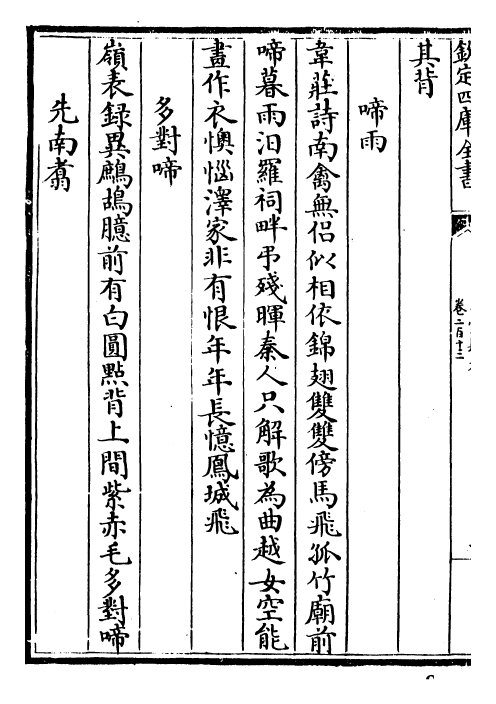 欽定四庫全書
卷二百十三
其背
啼雨
韋莊詩南禽無侣似相依錦翅雙雙傍馬飛孤竹廟前
啼暮雨汨羅祠畔弔殘暉秦人只解歌為曲越女空能
畫作衣懊惱澤家非有恨年年長憶鳳城飛
多對啼
嶺表録異鷓鴣臆前有白圓㸃背上間紫赤毛多對啼
先南翥